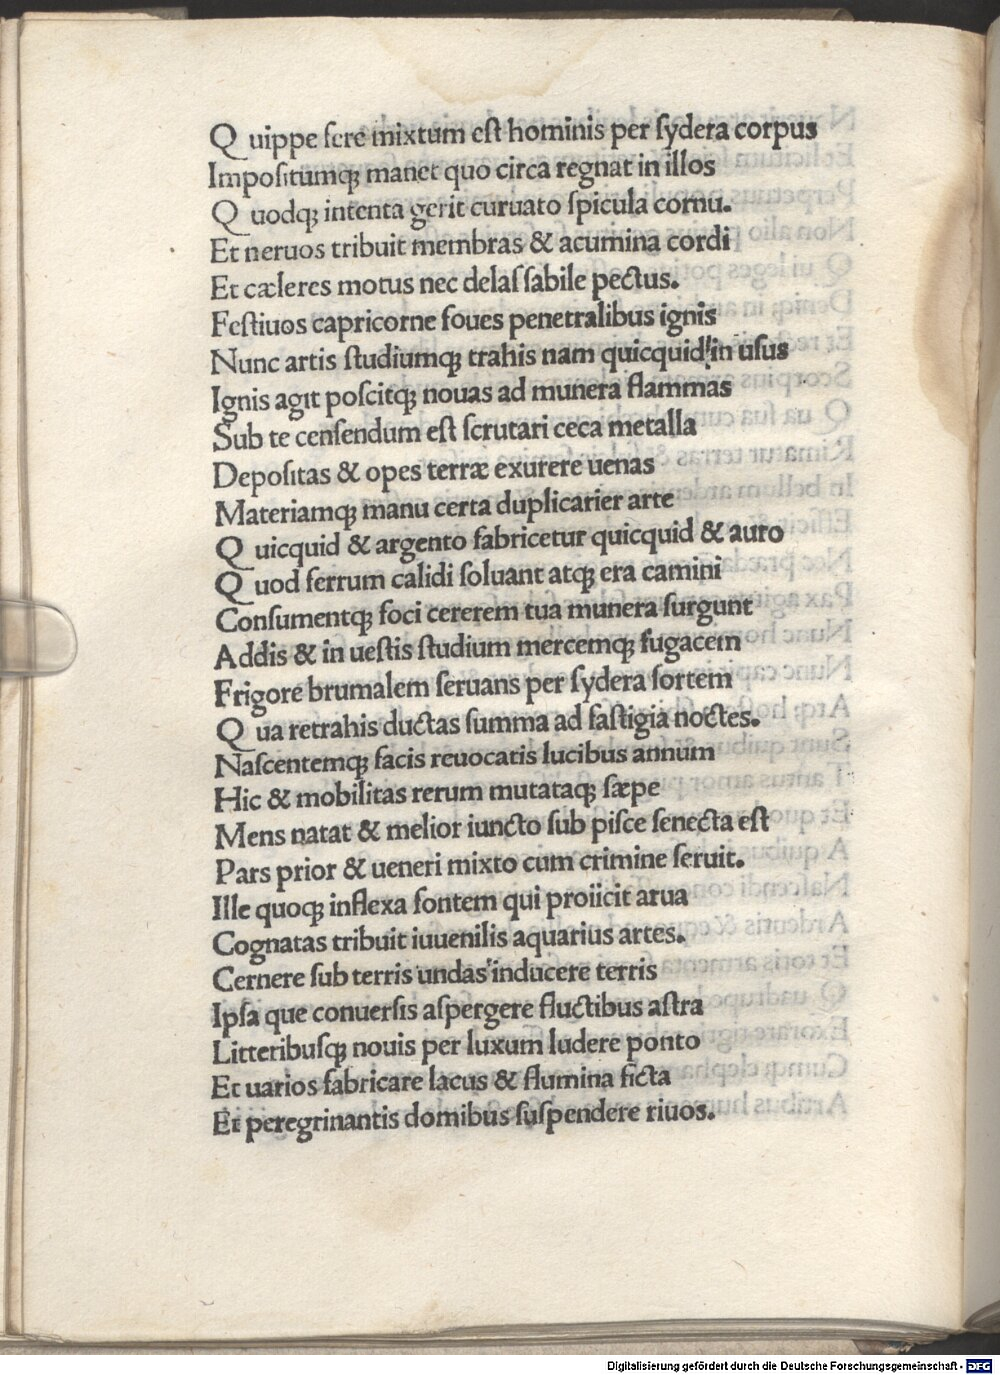 Q uippe fere mixtum eſt hominis per ſydera corpus
Impoſitumqꝫ manet quo circa regnat in illos
Q uodqꝫ intenta gerit curuato ſpicula cornu.
Et neruos tribuit membras & acumina cordi
Et cæleres motus nec delaſſabile pectus.
Feſtiuos capricorne foues penetralibus ignis
Nunc artis ſtudiumqꝫ trahis nam quicquid in uſus
Ignis agit poſcitqꝫ nouas ad munera flammas
Sub te cenſendum eſt ſcrutari ceca metalla
Depoſitas & opes terræ exurere uenas
Materiamqꝫ manu certa duplicarier arte
Q uicquid & argento fabricetur quicquid & auro
Q uod ferrum calidi ſoluant atqꝫ era camini
Conſumentqꝫ foci cererem tua munera ſurgunt
Addis & in ueſtis ſtudium mercemqꝫ fugacem
Frigore brumalem ſeruans per ſydera ſortem
Q ua retrahis ductas ſumma ad faſtigia noctes.
Naſcentemqꝫ facis reuocatis lucibus annum
Hic & mobilitas rerum mutataqꝫ ſæpe
Mens natat & melior iuncto ſub piſce ſenecta eſt
Pars prior & ueneri mixto cum crimine ſeruit.
Ille quoqꝫ inflexa fontem qui proiicit arua
Cognatas tribuit iuuenilis aquarius artes.
Cernere ſub terris undas inducere terris
Ipſa que conuerſis aſpergere fluctibus aſtra
Litteribuſqꝫ nouis per luxum ludere ponto
Et uarios fabricare lacus & flumina ficta
Et peregrinantis domibus ſuſpendere riuos.
Digitalisierung gefördert durch die Deutsche Forschungsgemeinschaft - DFG